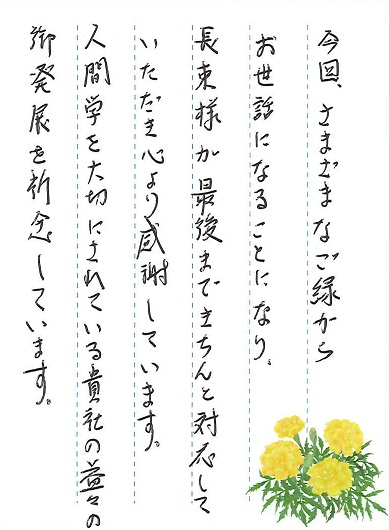 今回、さまざまなご縁から
お世話になることになり、
長束様が最後まできちんと対応して
いただき心より感謝しています。
人間学を大切にされている貴社の益々の
御発展を祈念しています。